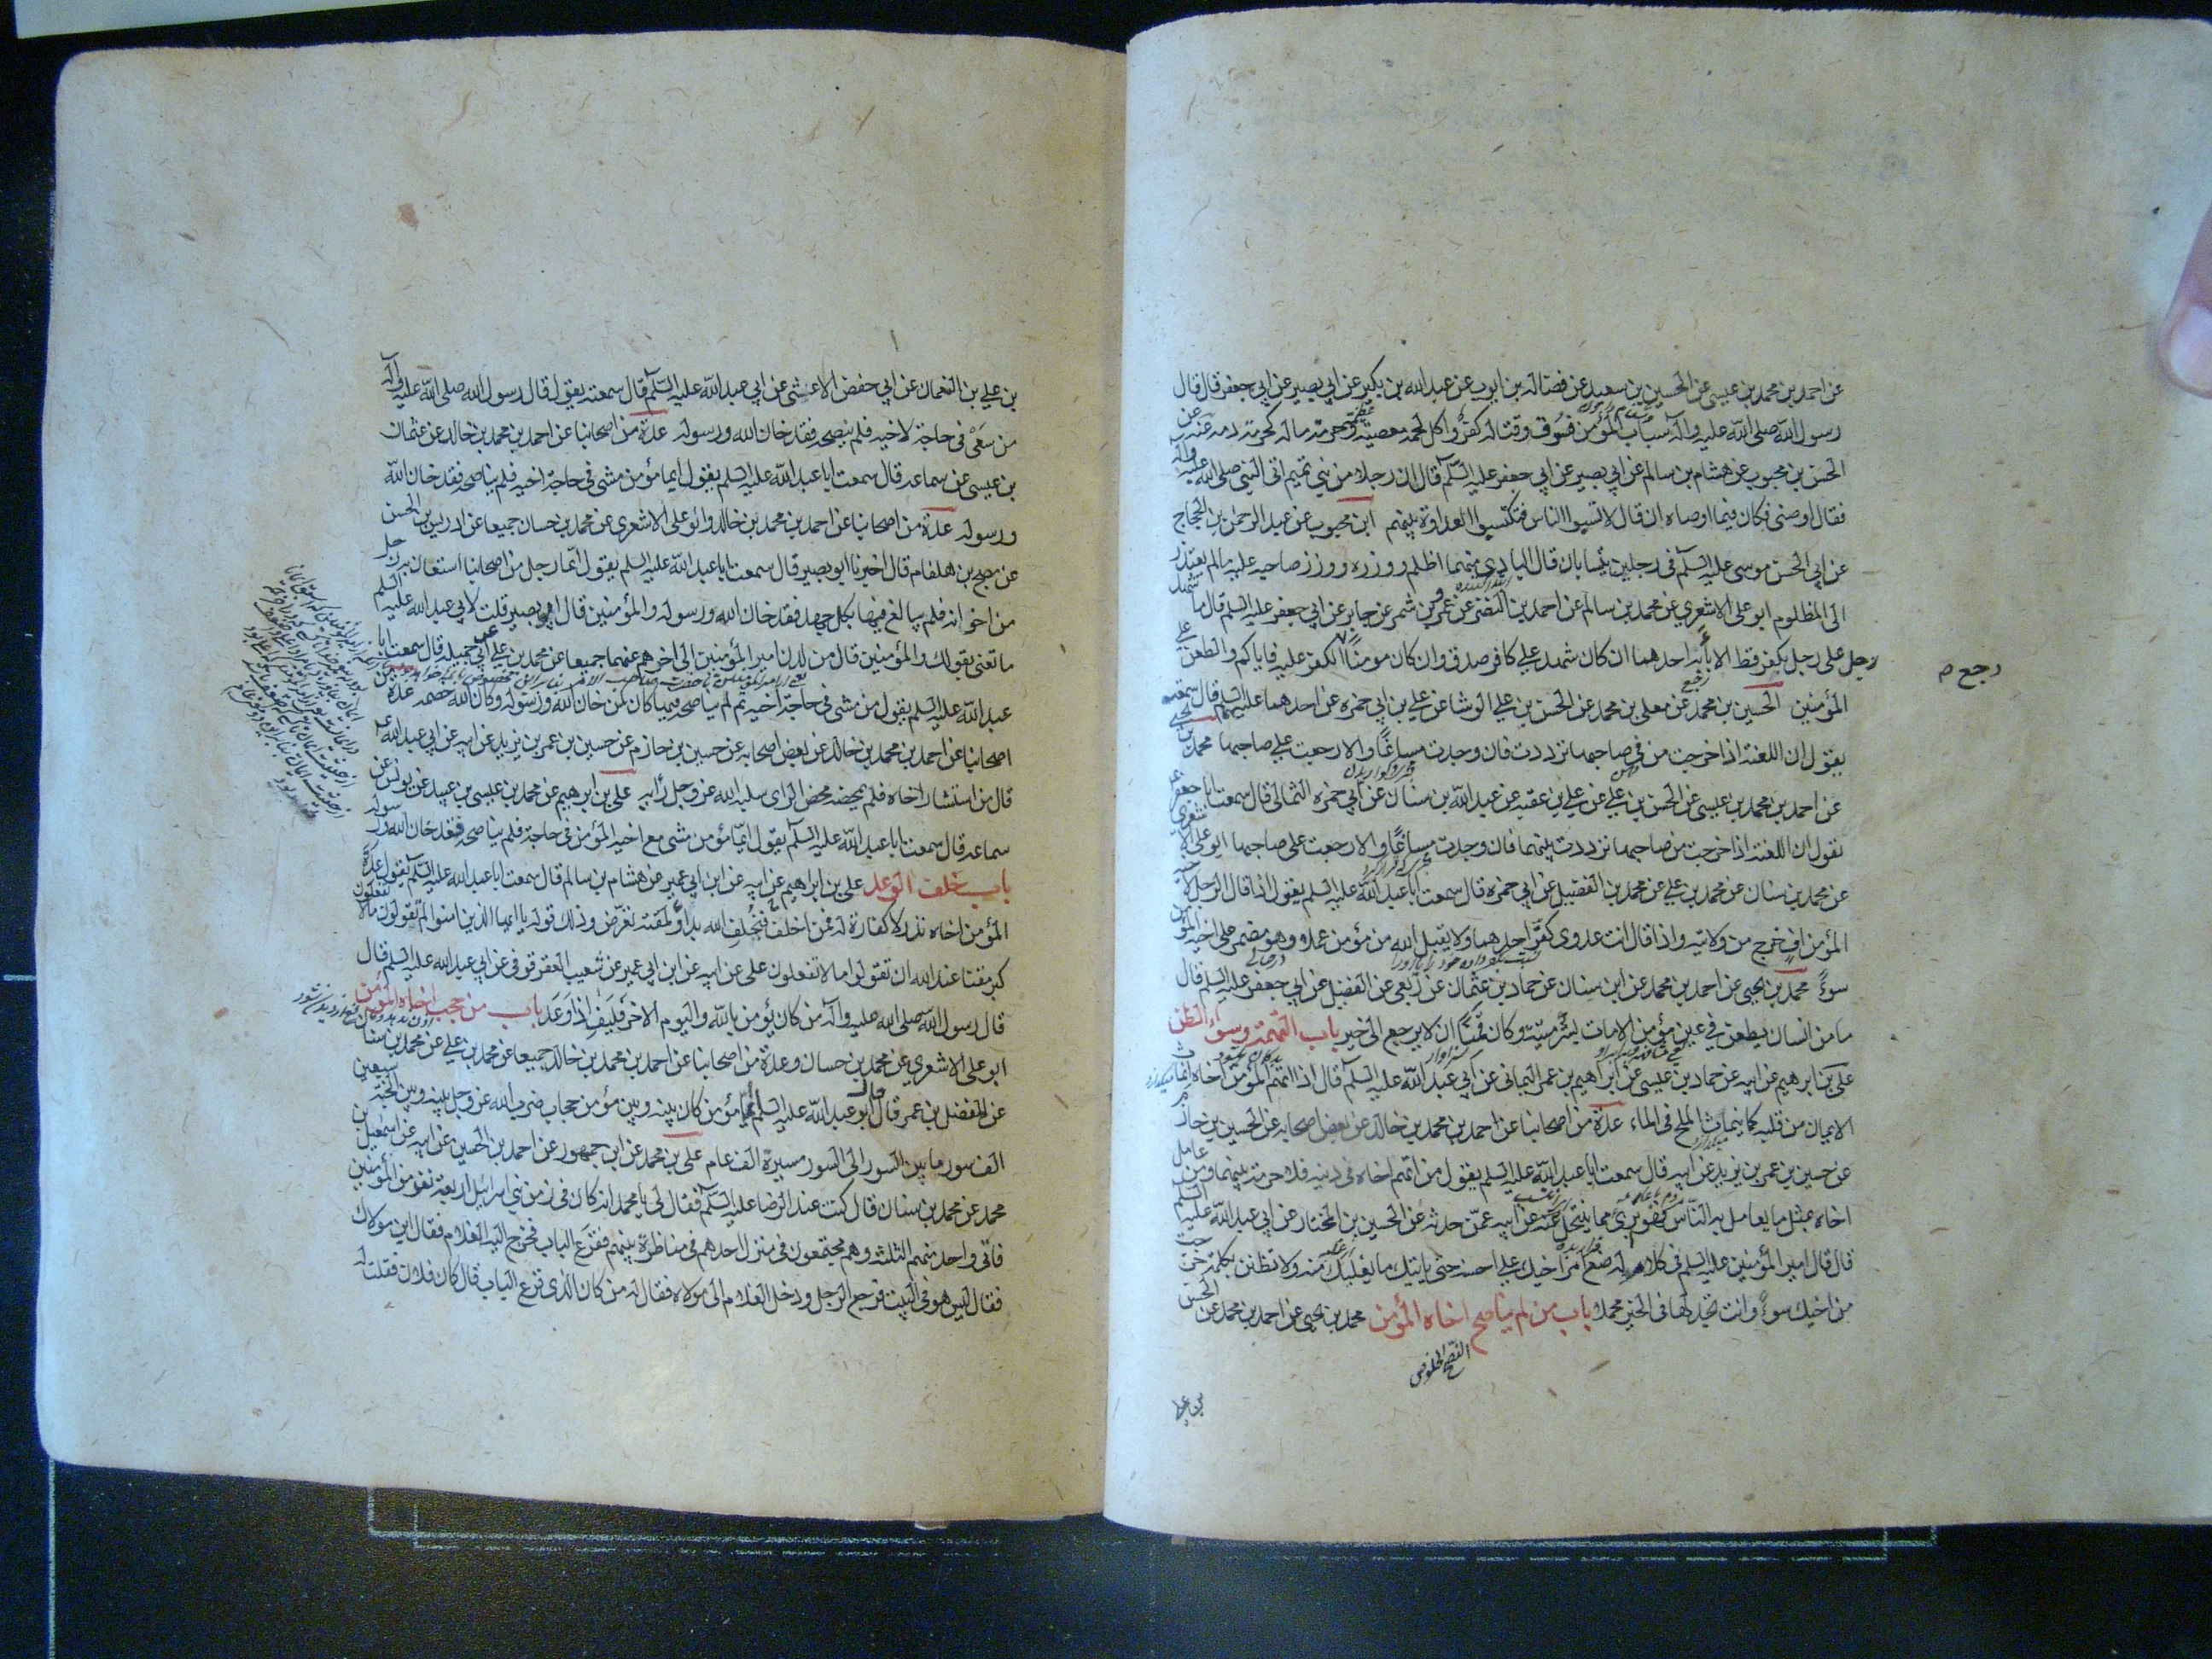 عن احمد بن محمد بن عيسى عن الحسين بن سعيد عن فضالة بن ايوب عن عبد الله بن بكير عن ابي بصير عن ابي جعفر قال قال
رسول الله صلى الله عليه واله سباب المؤمن فسوق وقتاله كفر واكل لحمه معصية وحرمة ماله كحرمة دمه عنه عن
الحسن بن محبوب عن هشام بن سالم عن ابي بصير عن ابي جعفر عليه السلم قال ان رجلا من بني تميم اتى النبي صلى الله عليه واله
فقال اوصني فكان فيما اوصاه ان قال لا تسبوا الناس فتكتسبوا العداوة بينهم ابن محبوب عن عبد الرحمن بن الحجاج
عن ابي الحسن موسى عليه السلم في رجلين يتسابان قال البادي منهما اظلم ووزره ووزر صاحبه عليه مالم يعتذر
الى المظلوم ابو على الاشعري عن محمد بن سالم عن احمد بن النضر عن عمرو بن شمر عن جابر عن ابي جعفر عليه السلم قال ما شهد
رجل على رجل بكفر قط الا باء به احدهما ان كان شهد على كافر صدق وان كان مومنا الكفر عليه فاياكم والطعن على
رجع م
المؤمنين الحسين بن محمد عن معلى بن محمد عن الحسن بن علي الوشا عن علي بن ابي حمزه عن احدهما عليهما السلم قال سمعته
يقول ان اللعنة اذا خرجت من في صاحبها ترددت فان وجدت مساغا والا رجعت على صاحبها محمد بن يحيى
عن احمد بن محمد بن عيسى عن الحسن بن علي عن علي بن عقبه عن عبد الله بن سنان عن ابي حمزه الثمالي قال سمعت ابا جعفر ع
يقول ان اللعنة اذا خرجت من صاحبها ترددت بينهما فان وجدت مساغا والا رجعت على صاحبها ابو على الاشعري
عن محمد بن سنان عن محمد بن علي عن محمد بن الفضيل عن ابي حمزه قال سمعت ابا عبد الله عليه السلم يقول اذا قال الرجل لاخيه
المؤمن اف خرج من ولايته واذا قال انت عدوي كفر احدهما ولا يقبل الله من مؤمن عملا وهو مضمر على اخيه المؤمن
سوءا محمد بن يحيى عن احمد بن محمد عن ابن سنان عن حماد بن عثمان عن ربعي عن الفضيل عن ابي جعفر عليه السلم قال
ما من انسان يطعن في عين مؤمن الا مات بشر ميتة وكان قمنا ان لا يرجع الى خير باب التهمة وسوء الظن
علي بن ابرهيم عن ابيه عن حماد بن عيسى عن ابراهيم بن عمر اليماني عن ابي عبد الله عليه السلم قال اذا اتهم المؤمن اخاه انماث
الايمان من قلبه كما ينماث الملح في الماء عدة من اصحابنا عن احمد بن محمد بن خالد عن بعض اصحابه عن الحسين بن حازم
عن حسين بن عمر بن يزيد عن ابيه قال سمعت ابا عبد الله عليه السلم يقول من اتهم اخاه في دينه فلا حرمة بينهما ومن عامل
اخاه بمثل ما يعامل به الناس فهو بريء مما ينتحل عنه عن ابيه عمن حدثه عن الحسين بن المختار عن ابي عبد الله عليه السلم
قال قال امير المؤمنين عليه السلم في كلام له ضع امر اخيك على احسنه حتى ياتيك ما يغلبك منه ولا تظنن بكلمة خرجت
من اخيك سوءا وانت تجد لها في الخير محملا باب من لم يناصح اخاه المؤمن محمد بن يحيى عن احمد بن محمد عن الحسن
النصح الخلوص
بن علي
بن علي بن النعمان عن ابي حفض الاعشى عن ابي عبد الله عليه السلم قال سمعته يقول قال رسول الله صلى الله عليه واله
من سعى في حاجة لاخيه فلم ينصحه فقد خان الله ورسوله عدة من اصحابنا عن احمد بن محمد بن خالد عن عثمان
بن عيسى عن سماعه قال سمعت ابا عبد الله عليه السلم يقول ايما مؤمن مشى في حاجة اخيه فلم يناصحه فقد خان الله
ورسوله عدة من اصحابنا عن احمد بن محمد بن خالد وابو على الاشعري عن محمد بن حسان جميعا عن ادريس بن الحسن
عن مصبح بن هلقام قال اخبرنا ابو بصير قال سمعت ابا عبد الله عليه السلم يقول ايما رجل من اصحابنا استعان به رجل
من اخوانه فلم يبالغ فيها بكل جهد فقد خان الله ورسوله والمؤمنين قال ابو بصير قلت لابي عبد الله عليه السلم
ما تعنى بقولك والمؤمنين قال من لدن امير المؤمنين الى اخرهم عنهما جميعا عن محمد بن علي عن ابي جميله قال سمعت ابا
عبد الله عليه السلم يقول من مشى في حاجة اخيه ثم لم يناصحه فيها كان كمن خان الله ورسوله وكان الله خصمه عدة من
اصحابنا عن احمد بن محمد بن خالد عن بعض اصحابه عن حسين بن حازم عن حسين بن عمر بن يزيد عن ابيه عن ابي عبد الله ع
قال من استشار اخاه فلم يمحضه محض الراى سلبه الله عز وجل رأيه علي بن ابرهيم عن محمد بن عيسى بن عبيد عن يونس عن
سماعه قال سمعت ابا عبد الله عليه السلم يقول ايما مؤمن مشى مع اخيه المؤمن في حاجة فلم يناصحه فقد خان الله ورسوله
باب خلف الوعد علي بن ابراهيم عن ابيه عن ابن ابي عمير عن هشام بن سالم قال سمعت ابا عبد الله عليه السلم يقول عدة
المؤمن اخاه نذر لا كفارة له فمن اخلف فبخلف الله بدأ ولمقته تعرض وذلك قوله يا ايها الذين امنوا لم تقولون مالا تفعلون
كبر مقتا عند الله ان تقولوا ما لا تفعلون على عن ابيه عن ابن ابي عمير عن شعيب العقرقوفي عن ابي عبد الله عليه السلم قال
قال رسول الله صلى الله عليه واله من كان يؤمن بالله واليوم الاخر فليف اذا وعد باب من حجب اخاه المؤمن
ابو على الاشعري عن محمد بن حسان وعدة من اصحابنا عن احمد بن محمد بن خالد جميعا عن محمد بن علي عن محمد بن سنان
عن المفضل بن عمر قال قال ابو عبد الله عليه السلم ايما مؤمن كان بينه وبين مؤمن حجاب ضرب الله عز وجل بينه وبين الجنة سبعين
الف سور ما بين السور الى السور مسيرة الف عام علي بن محمد عن ابن جمهور عن احمد بن الحسين عن ابيه عن اسمعيل بن
محمد عن محمد بن سنان قال كنت عند الرضا عليه السلم فقال لي يا محمد انه كان في زمن بني اسرائيل اربعة نفر من المؤمنين
فاتى واحد منهم الثلثة وهم مجتمعون في منزل احدهم في مناظرة بينهم فقرع الباب فخرج اليه الغلام فقال اين مولاك
فقال ليس هو في البيت فرجع الرجل ودخل الغلام الى مولاه فقال له من كان الذي قرع الباب قال كان فلان فقلت له